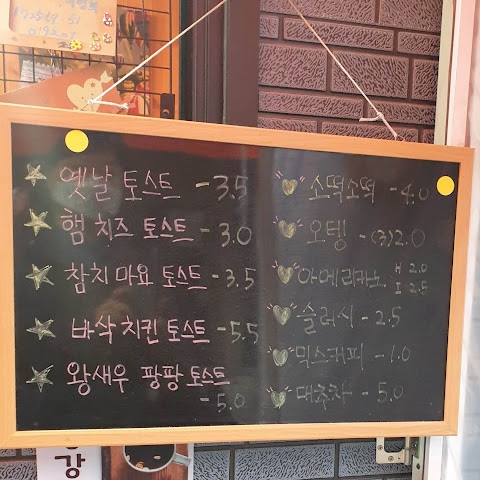 옛날 토스트 - 3.5
햄 치즈 토스트 - 3.0
참치 마요 토스트 - 3.5
바삭 치킨 토스트 - 5.5
왕새우 팡팡 토스트
- 5.0
소떡소떡 - 4.0
오뎅 - (3)2.0
아메리카노 H 2.0
I 2.5
슬러시 - 2.5
믹스커피 - 1.0
대추차 - 5.0
강